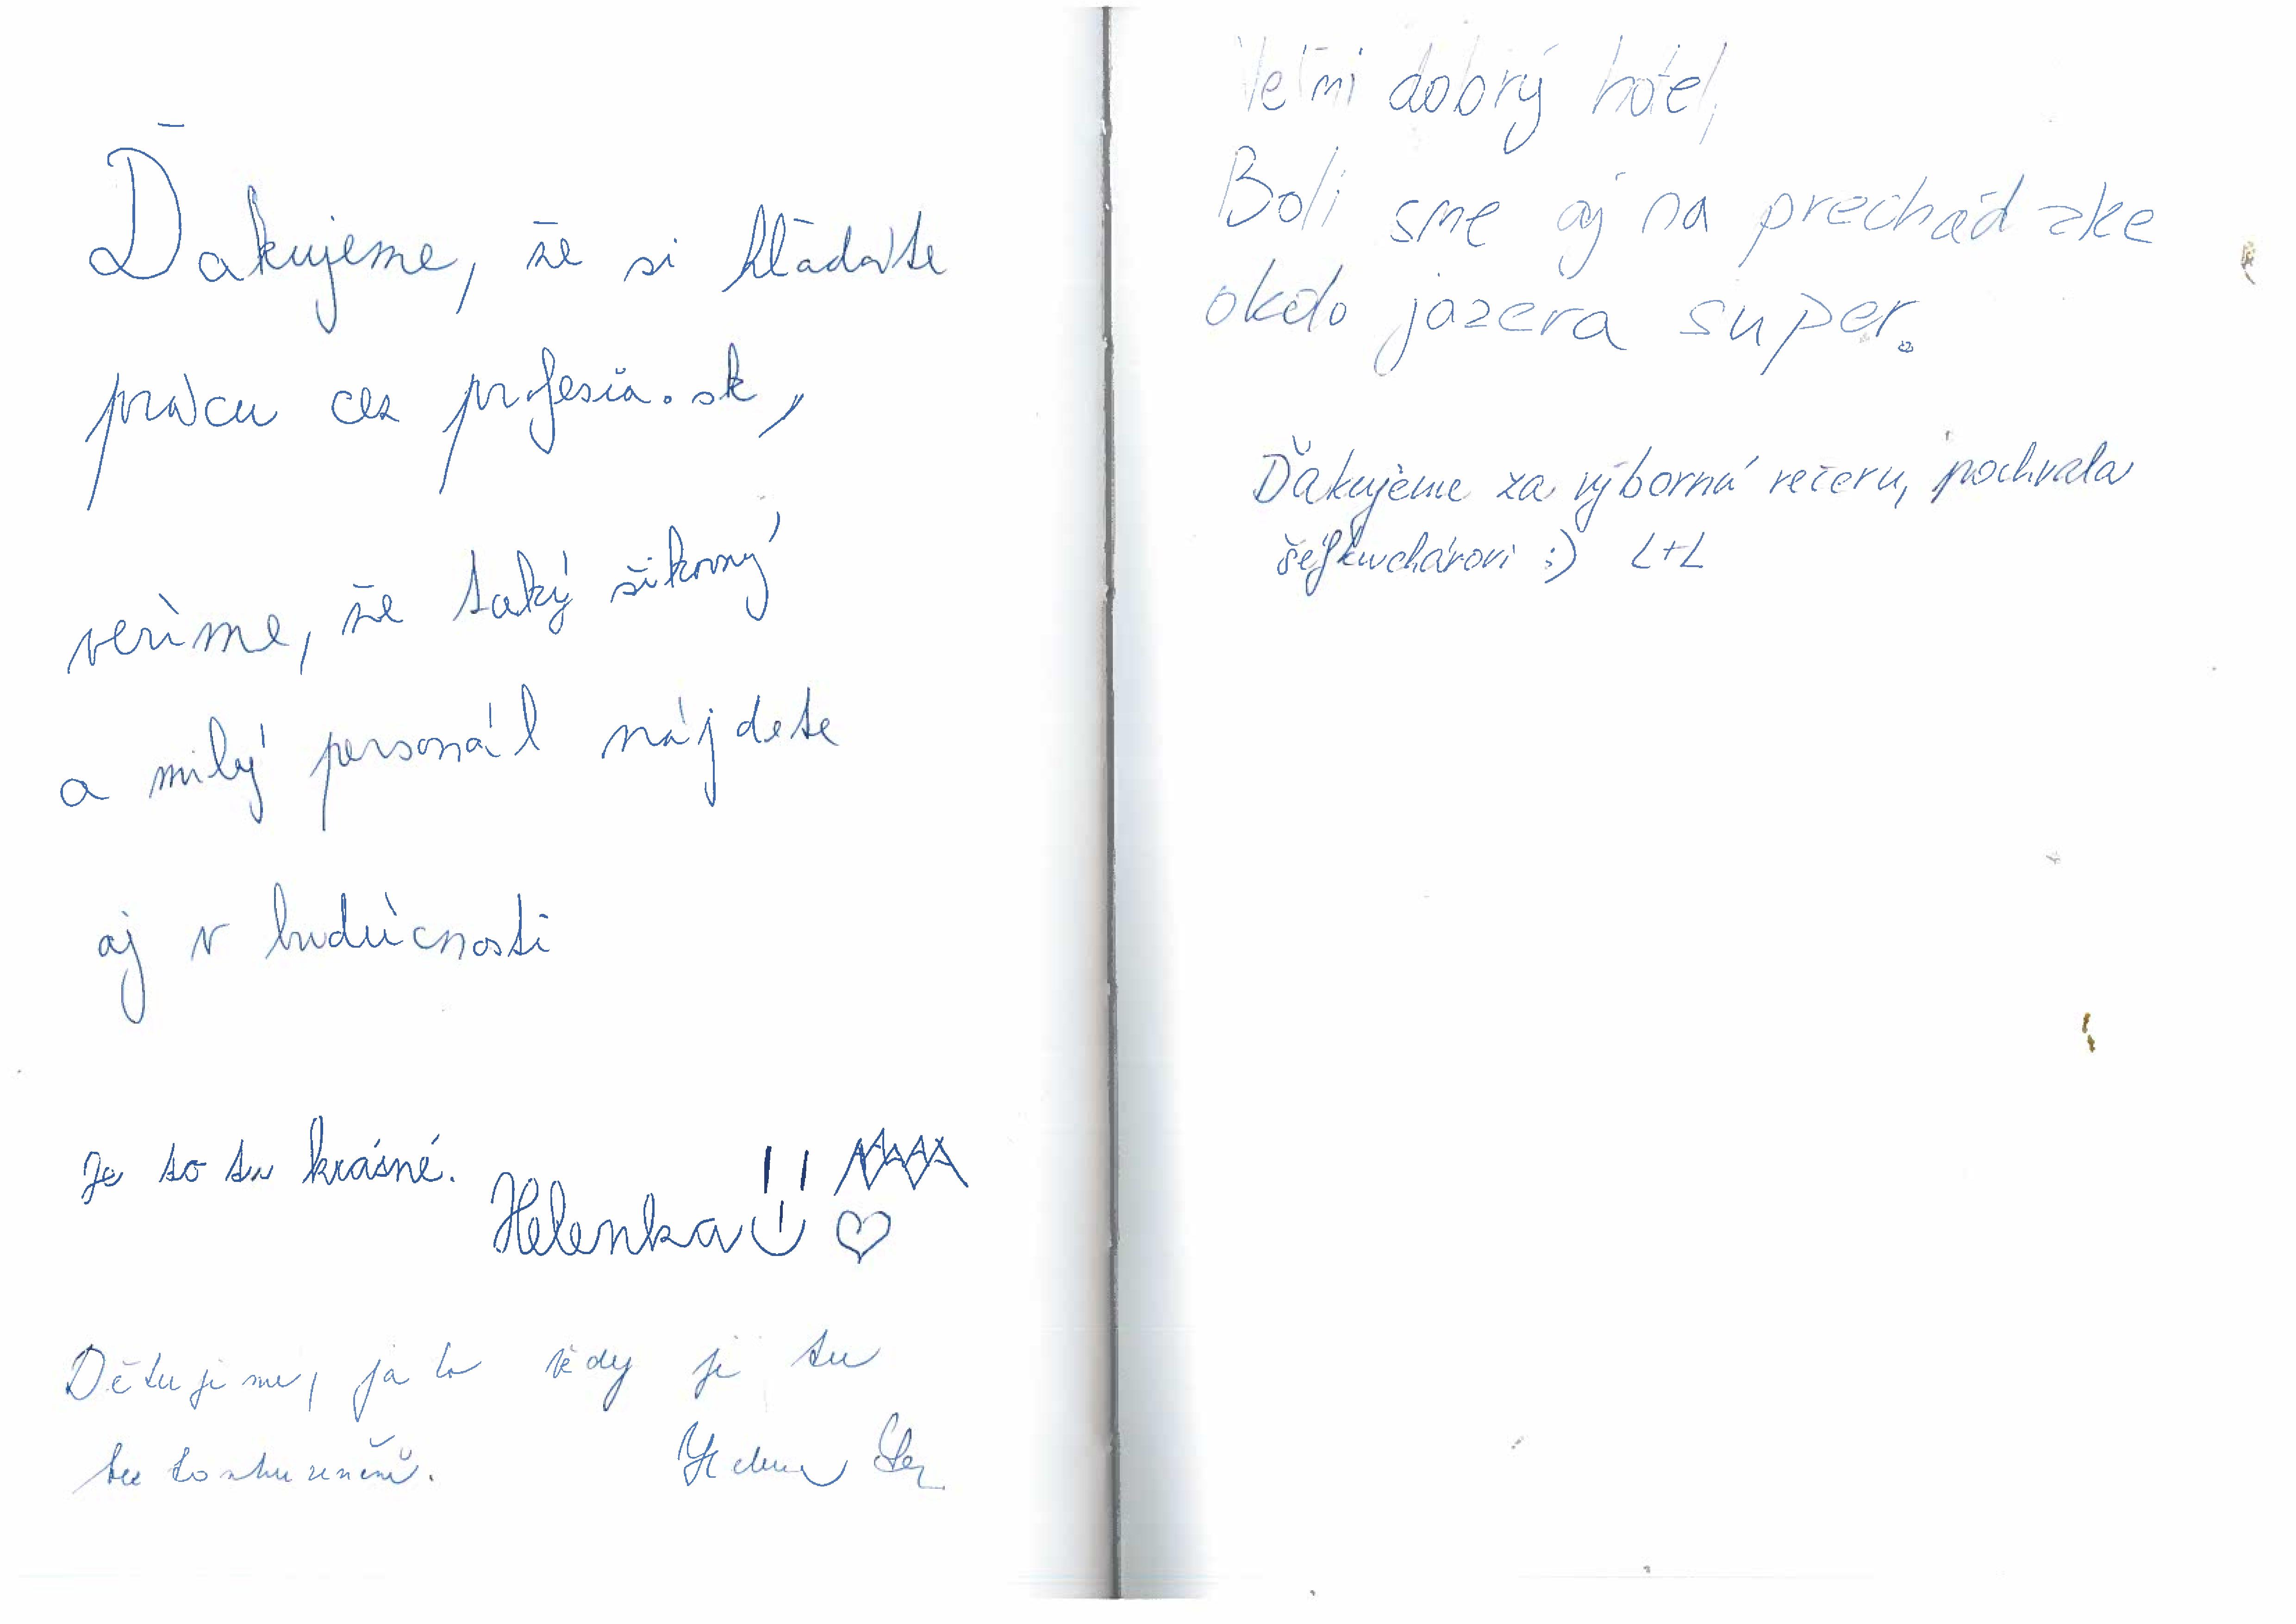 Ďakujeme, že si hľadáte
prácu cez profesia.sk,
veríme, že taký šikovný
a milý personál nájdete
aj v budúcnosti
Je to tu krásné.
Helenka
Děkujeme, jako vždy je tu
bez konkurenčně.
Veľmi dobrý hotel,
Boli sme aj na prechádzke
okolo jazera super.
Ďakujeme za výborná večeru, pochvala
šéfkuchárovi :) L+L